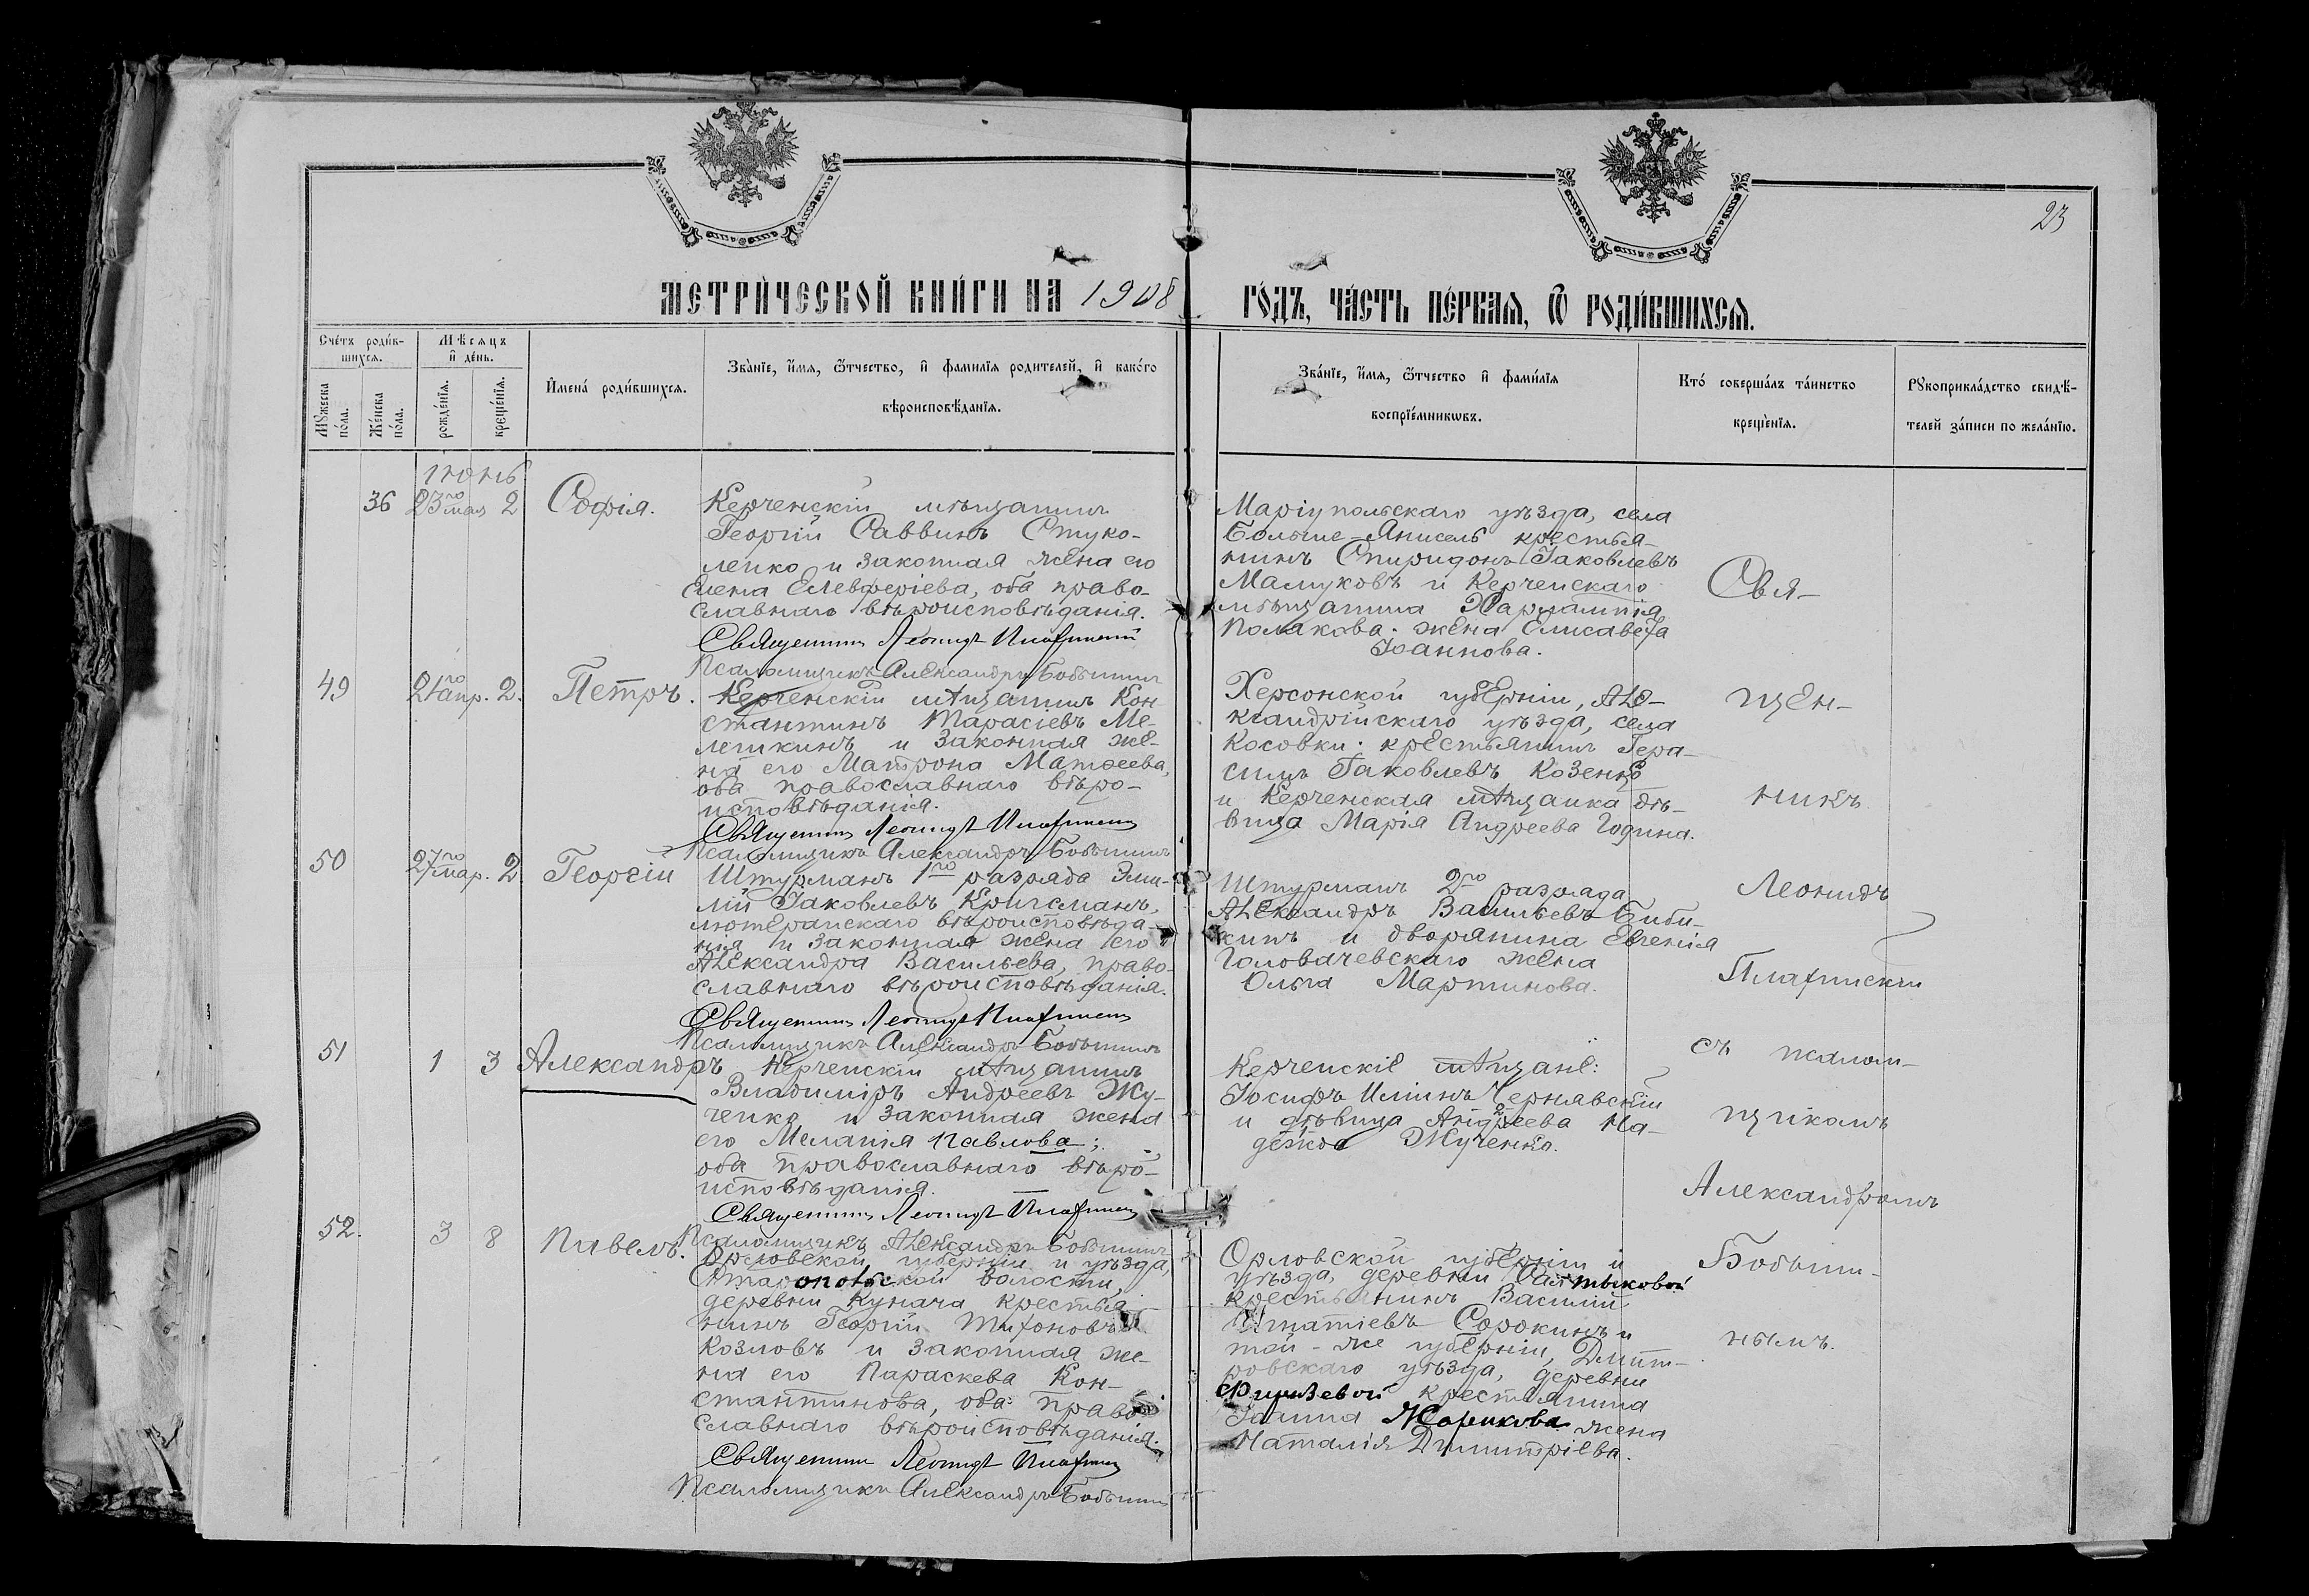 23
МЕТРИ́ЧЕСКОЙ КНИ́ГИ НА 1908
ГО́ДЪ, ЧА́СТЬ ПЕ́РВАЯ, Ѿ РОДИ́ВШИХСЯ.
Сче́тъ роди́в-
шихся.
Мѣсяцъ
и де́нь.
Мꙋжеска
по́ла.
Же́нска
по́ла.
рожде́нїя.
креще́нїя.
Имена̀ роди́вшихся.
Зва̀нїе, и́мя, ѻ́тчество, и фамилїя родителей, и како́го
вѣроисповѣ́данїя.
Зва́нїе, и́мя, ѻ́тчество и фами́лїя
воспрїе́мникѡвъ.
Кто́ соверша́лъ та́инство
креще́нїя.
Рꙋкоприкла́дство свидѣ́-
телей за́писи по жела́нїю.
Іюнь
36 23го мая 2 Софія.
Керченскій мѣщанинъ
Георгій Саввинъ Стуко-
ленко и законная жена его
Елена Елевферіева, оба право-
славнаго вѣроисповѣданія.
Священникъ Леонидъ
Псаломщикъ Александръ Бобынинъ
Маріупольскаго уѣзда, села
Больше-Янисель крестья-
нинъ Спиридонъ Іаковлевъ
Мамуковъ и Керченскаго
мѣщанина Харлампія
Полякова жена Елисавета
Іоаннова.
49 21го апр. 2. Петръ.
Керченскій мѣщанинъ Кон-
стантинъ Тарасіевъ Ме-
лешкинъ и законная же-
на его Матрона Матѳеева,
оба православнаго вѣро-
исповѣданія.
Священникъ Леонидъ
Псаломщикъ Александръ Бобынинъ
Херсонской губерніи, Але-
ксандрійскаго уѣзда, села
Косовки крестьянинъ Гера-
симъ Іаковлевъ Козенко
и Керченская мѣщанка дѣ-
вица Марія Андреева Година.
50 27го мар. 2 Георгій
Штурманъ 1го разряда Эми-
лій Іаковлевъ Кригсманъ,
лютеранскаго вѣроисповѣда-
нія и законная жена его
Александра Васильева, право-
славнаго вѣроисповѣданія.
Священникъ Леонидъ
Псаломщикъ Александръ Бобынинъ
Штурманъ 2го разряда
Александръ Васильевъ Биби-
кинъ и дворянина Евгенія
Головачевскаго жена
Ольга Мартинова.
51 1 3 Александръ
Керченскій мѣщанинъ
Владиміръ Андреевъ Жу-
ченко и законная жена
его Меланія Павлова;
оба православнаго вѣро-
исповѣданія.
Священникъ Леонидъ
Псаломщикъ Александръ Бобынинъ
Керченскіе мѣщане:
Іосифъ Ильинъ Чернявскій
и дѣвица Андреева На-
дежда Жученко.
52. 3 8 Павелъ.
Орловской губерніи и уѣзда,
волости,
деревни Кунача крестья-
нинъ Георгій Тихоновъ
Козловъ и законная же-
на его Параскева Кон-
стантинова, оба право-
славнаго вѣроисповѣданія.
Священникъ Леонидъ
Псаломщикъ Александръ Бобынинъ
Орловской губерніи и
уѣзда, деревни
крестьянинъ Василій
Игнатіевъ Сорокинъ и
той-же губерніи, Дмит-
ровскаго уѣзда, деревни
крестьянина
Іоанна Жарикова жена
Наталія Димитріева.
Свя-
щен-
никъ
Леонидъ
съ псалом-
щикомъ
Александромъ
Бобыни-
нымъ.